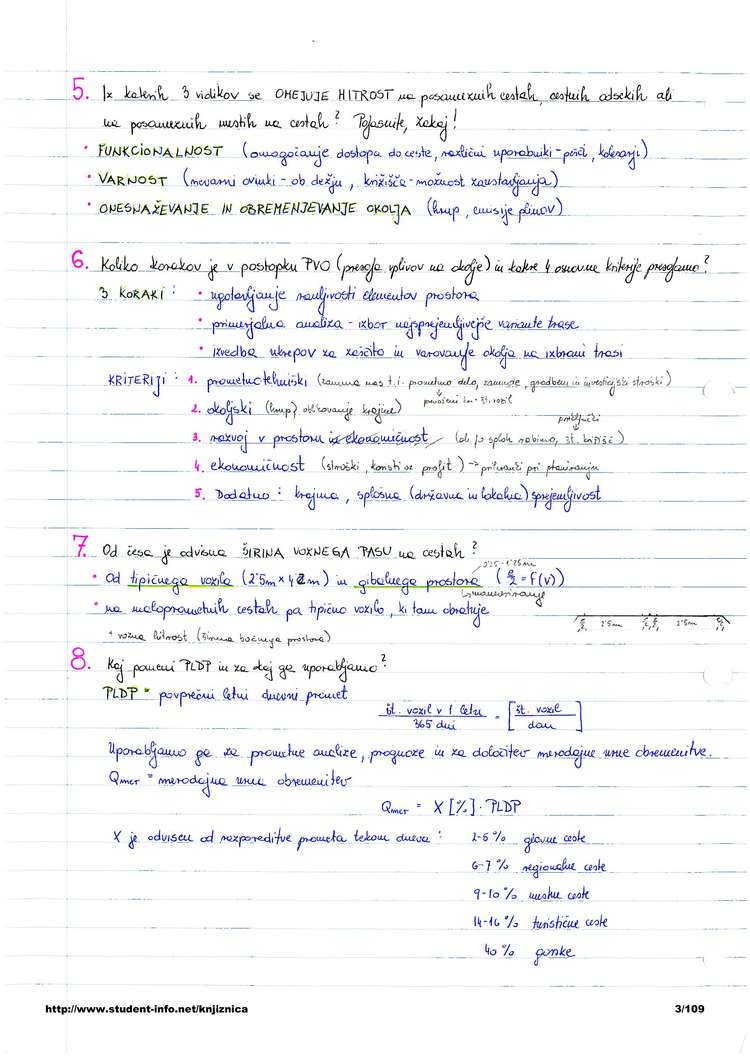 5. Iz katerih 3 vidikov se OMEJUJE HITROST na posameznih cestah, cestnih odsekih ali
na posameznih mestih na cestah? Pojasnite, zakaj!
• FUNKCIONALNOST (omogočanje dostopa do ceste, različni uporabniki - pešci, kolesarji)
• VARNOST (nevarni ovinki - ob dežju, križišče - možnost zaustavljanja)
• ONESNAŽEVANJE IN OBREMENJEVANJE OKOLJA (hrup, emisije plinov)
6. Koliko korakov je v postopku PVO (presoja vplivov na okolje) in katere 4 osnovne kriterije presojamo?
3 KORAKI: • ugotavljanje ranljivosti elementov prostora
• primerjalna analiza - izbor najsprejemljivejše variante trase
• izvedba ukrepov za zaščito in varovanje okolja na izbrani trasi
KRITERIJI: 1. prometnotehniški (zanima nas t.i. prometno delo, zamude, gradbeni in investicijski stroški)
2. okoljski (hrup, oblikovanje krajine)
priključki
3. razvoj v prostoru in ekonomičnost (ali jo sploh rabimo, št. križišč)
4. ekonomičnost (stroški, koristi oz. profit) → prihranki pri planiranju
5. Dodatno: krajina, splošna (državna in lokalna) sprejemljivost
7. Od česa je odvisna ŠIRINA VOZNEGA PASU na cestah?
0'25 - 1'25 m
• Od tipičnega vozila (2'5m × 4'2m) in gibalnega prostora (š/2 = f(v))
↳ manevriranje
• na maloprometnih cestah pa tipično vozilo, ki tam obratuje
2'5m 2'5m
+ vozna hitrost (širina bočnega prostora)
8. Kaj pomeni PLDP in za kaj ga uporabljamo?
PLDP = povprečni letni dnevni promet
št. vozil v 1 letu / 365 dni = [št. vozil / dan]
Uporabljamo ga za prometne analize, prognoze in za določitev merodajne urne obremenitve.
Qmer = merodajna urna obremenitev
Qmer = X [%] · PLDP
X je odvisen od razporeditve prometa tekom dneva: 2-5 % glavne ceste
6-7 % regionalne ceste
9-10 % mestne ceste
14-16 % turistične ceste
40 % gorske
http://www.student-info.net/knjiznica 3/109